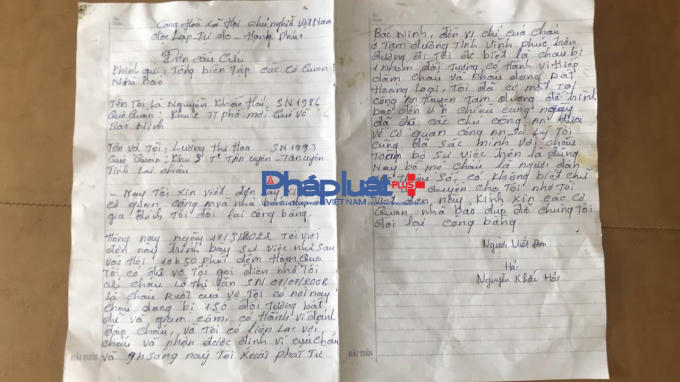 Cộng Hoà Xã Hội chủ nghĩa Việt Nam
độc Lập Tự do - Hạnh Phúc
Đơn cầu Cứu
Kính gửi: Tổng biên Tập các Cơ Quan
Nhà Báo
Tên Tôi là Nguyễn Khắc Hải, SN 1986
Quê Quán: Khu 2 TT phố mới Quế Võ
Bắt Ninh
Tên vợ Tôi, Lường thị Hoa SN 1993
Quê Quán: Khu 5 TT Tân uyên - Tân uyên
Tỉnh Lai châu
- Nay Tôi Xin viết đơn
cơ quan, công an và nhà báo
gia đình Tôi đòi lại công bằng
Hôm nay ngày 2022 Tôi viết
đơn này trình bày Sự việc như Sau
vào Hồi 10h50 phút đêm Hôm Qua
Tôi có chị vợ Tôi gọi điện nhờ Tôi
cứu cháu Lò thị Vân SN 07/07/2008
là cháu Ruột của vợ Tôi có nói nay
cháu đang bị 1 Số đối tượng bắt
dữ và giam cầm, có Hành vi đánh
đập cháu, và Tôi có liên Lạc với
cháu và nhận được định vị của cháu
và 9h sáng nay Tôi Xuất Phát Từ
Pháp luật PLUS
VIỆT NAM
HẢI TIẾN
Bắc Ninh, đến vị chí của cháu
ở Tam dương Tỉnh Vĩnh Phúc Trên
đường đi Tôi được biết là cháu bị
1 Nhóm đối Tượng có Hành vi Hiếp
dâm cháu và cháu đang Rất
Hoảng Loạn, Tôi đã có mặt Tại
công An Huyện Tam dương để trình
báo đến 4h chiều cùng ngày
đã được các chú công an đưa
về cơ quan công an Sử Lý Tôi
cũng đã Sác minh với cháu
Toàn bộ Sự việc hiện là đúng
Nay bố mẹ cháu là người dân
Số, có không biết chữ
Quyền cho Tôi nhờ Tôi
viết đơn này, Kính Xin các Cơ
Quan, nhà báo giúp đỡ chúng Tôi
đòi lại công bằng
Người viết Đơn
Hải
Nguyễn Khắc Hải
HẢI TIẾN